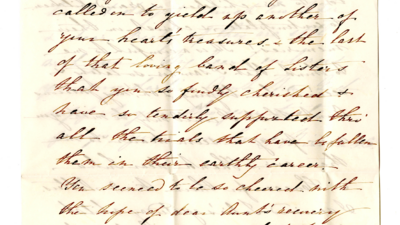 called in to yield up another of
your heart's treasures, & the last
of that loving band of Sisters
that you so fondly cherished &
have so tenderly supported thro'
all the trials that have befallen
them in their earthly career.
You seemed to be so cheered with
the hope of dear Aunt's recovery